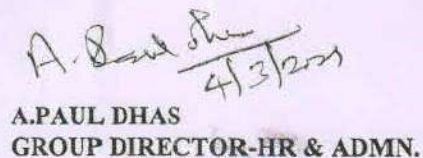 A. Paul Dhas
4/3/2021
A.PAUL DHAS
GROUP DIRECTOR-HR & ADMN.